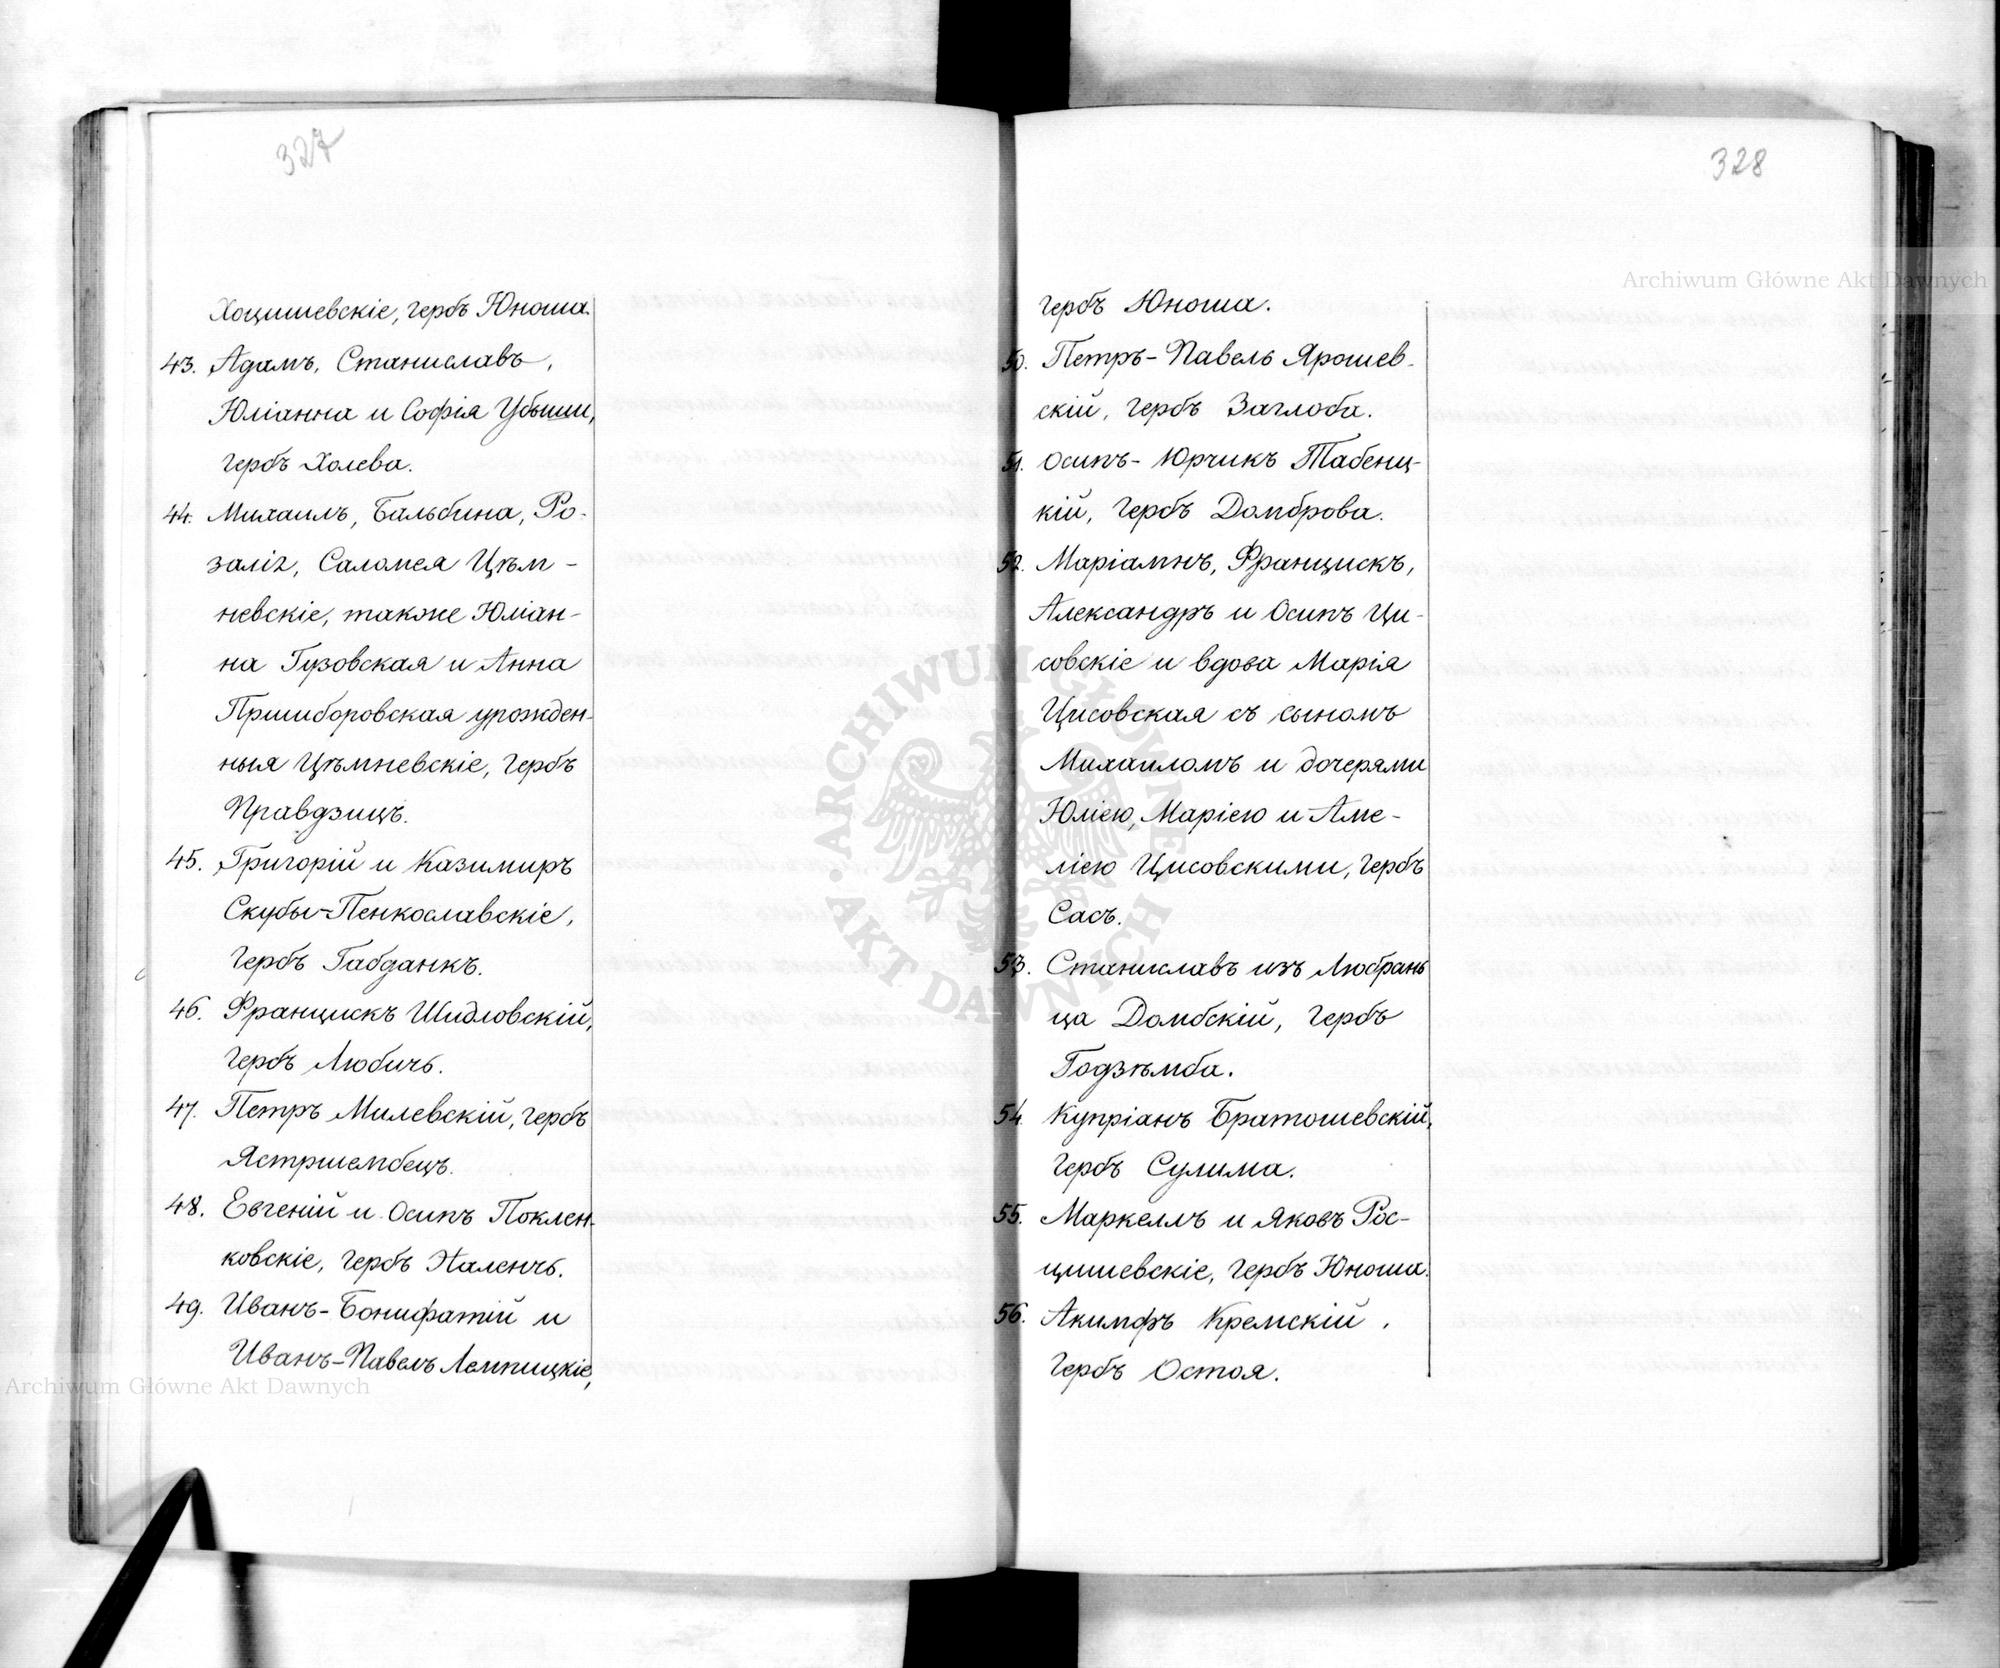 327
Хоцишевскіе, гербъ Юноша.
43. Адамъ, Станиславъ,
Юліанна и Софія Убыши,
гербъ Холева.
44. Михаилъ, Бальбина, Ро-
залія, Саломея Цѣм-
невскіе, также Юліан-
на Гузовская и Анна
Пршиборовская урожден-
ныя Цѣмневскіе, гербъ
Правдзицъ.
45. Григорій и Казимиръ
Скубы-Пенкославскіе,
гербъ Габданкъ.
46. Францискъ Шидловскій,
гербъ Любичъ.
47. Петръ Милевскій, гербъ
Ястршембецъ.
48. Евгеній и Осипъ Поклен-
ковскіе, гербъ Наленчъ.
49. Иванъ-Бонифатій и
Иванъ-Павелъ Лемпицкіе,
328
гербъ Юноша.
50. Петръ-Павелъ Ярошев-
скій, гербъ Заглоба.
51. Осипъ-Юрчикъ Табенц-
кій, гербъ Домброва.
52. Маріаннъ, Францискъ,
Александръ и Осипъ Ци-
совскіе и вдова Марія
Цисовская съ сыномъ
Михаиломъ и дочерями
Юліею, Маріею и Аме-
ліею Цисовскими, гербъ
Сасъ.
53. Станиславъ изъ Любрань
ца Домбскій, гербъ
Годзѣмба.
54. Купріанъ Братошевскій,
гербъ Сулима.
55. Маркеллъ и Яковъ Рос-
цишевскіе, гербъ Юноша.
56. Акимфъ Кремскій,
гербъ Остоя.
Archiwum Główne Akt Dawnych
Archiwum Główne Akt Dawnych
ARCHIWUM GŁÓWNE · AKT DAWNYCH ·